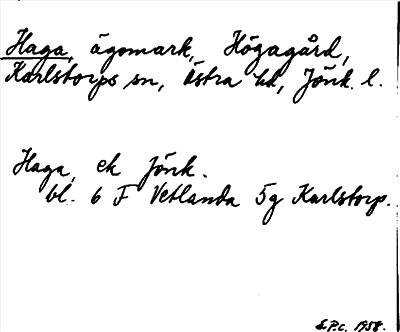 Haga, ägomark, Högagård,
Karlstorps sn, Östra hd, Jönk. l.
Haga, ek Jönk.
bl. 6 F Vetlanda 5g Karlstorp.
S.P.c. 1958.